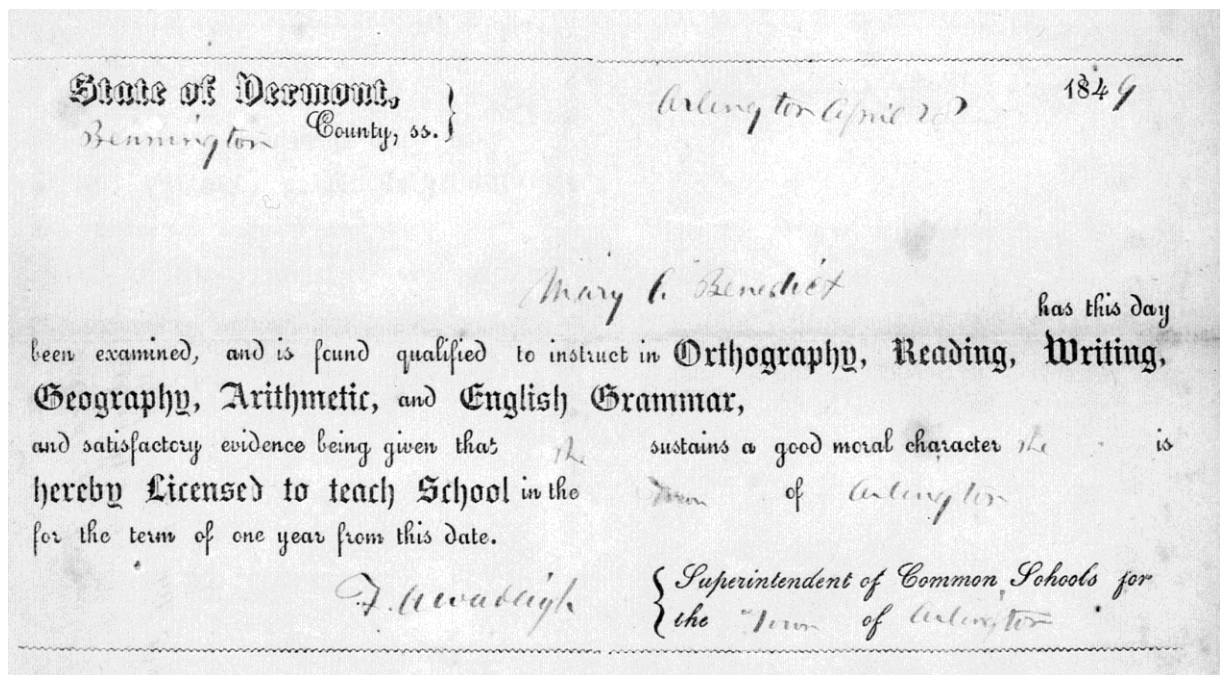 State of Vermont,
Bennington County, ss.
Arlington April 28 1849
Mary C. Benedict
has this day
been examined, and is found qualified to instruct in Orthography, Reading, Writing,
Geography, Arithmetic, and English Grammar,
and satisfactory evidence being given that she sustains a good moral character she is
hereby Licensed to teach School in the Town of Arlington
for the term of one year from this date.
F. A. Wadleigh
Superintendent of Common Schools for
the Town of Arlington